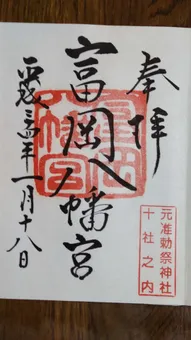 奉拝
元准勅祭神社
十社之内
富岡八幡宮
平成三十年一月十八日